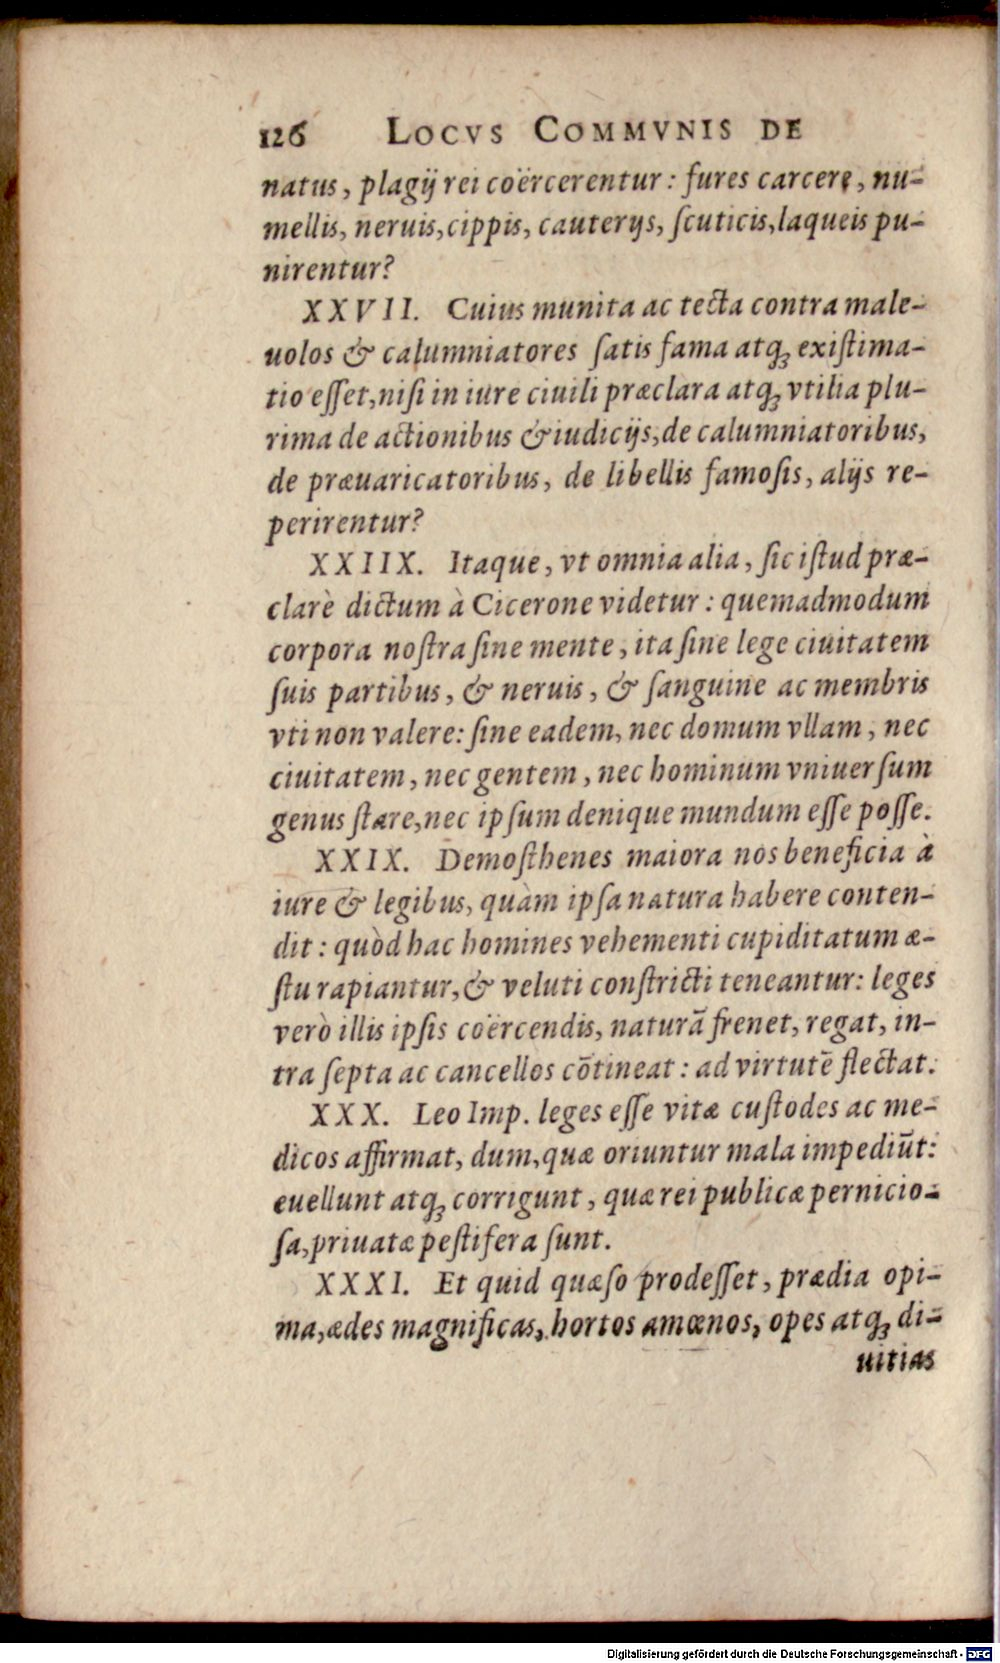 126 LOCVS COMMVNIS DE
natus, plagij rei coërcerentur: fures carcere, nu-
mellis, neruis, cippis, cauterijs, ſcuticis, laqueis pu-
nirentur?
XXVII. Cuius munita ac tecta contra male-
uolos & calumniatores ſatis fama atqꝫ exiſtima-
tio eſſet, niſi in iure ciuili præclara atqꝫ vtilia plu-
rima de actionibus & iudicijs, de calumniatoribus,
de præuaricatoribus, de libellis famoſis, alijs re-
perirentur?
XXIIX. Itaque, vt omnia alia, ſic iſtud præ-
clarè dictum à Cicerone videtur: quemadmodum
corpora noſtra ſine mente, ita ſine lege ciuitatem
ſuis partibus, & neruis, & ſanguine ac membris
vti non valere: ſine eadem, nec domum vllam, nec
ciuitatem, nec gentem, nec hominum vniuerſum
genus ſtare, nec ipſum denique mundum eſſe poſſe.
XXIX. Demoſthenes maiora nos beneficia à
iure & legibus, quàm ipſa natura habere conten-
dit: quòd hac homines vehementi cupiditatum æ-
ſtu rapiantur, & veluti conſtricti teneantur: leges
verò illis ipſis coërcendis, naturã frenet, regat, in-
tra ſepta ac cancellos cõtineat: ad virtutẽ flectat.
XXX. Leo Imp. leges eſſe vitæ cuſtodes ac me-
dicos affirmat, dum, quæ oriuntur mala impediũt:
euellunt atqꝫ corrigunt, quæ rei publicæ pernicio-
ſa, priuatæ peſtifera ſunt.
XXXI. Et quid quæſo prodeſſet, prædia opi-
ma, ædes magnificas, hortos amœnos, opes atqꝫ di-
uitias
Digitalisierung gefördert durch die Deutsche Forschungsgemeinschaft - DFG